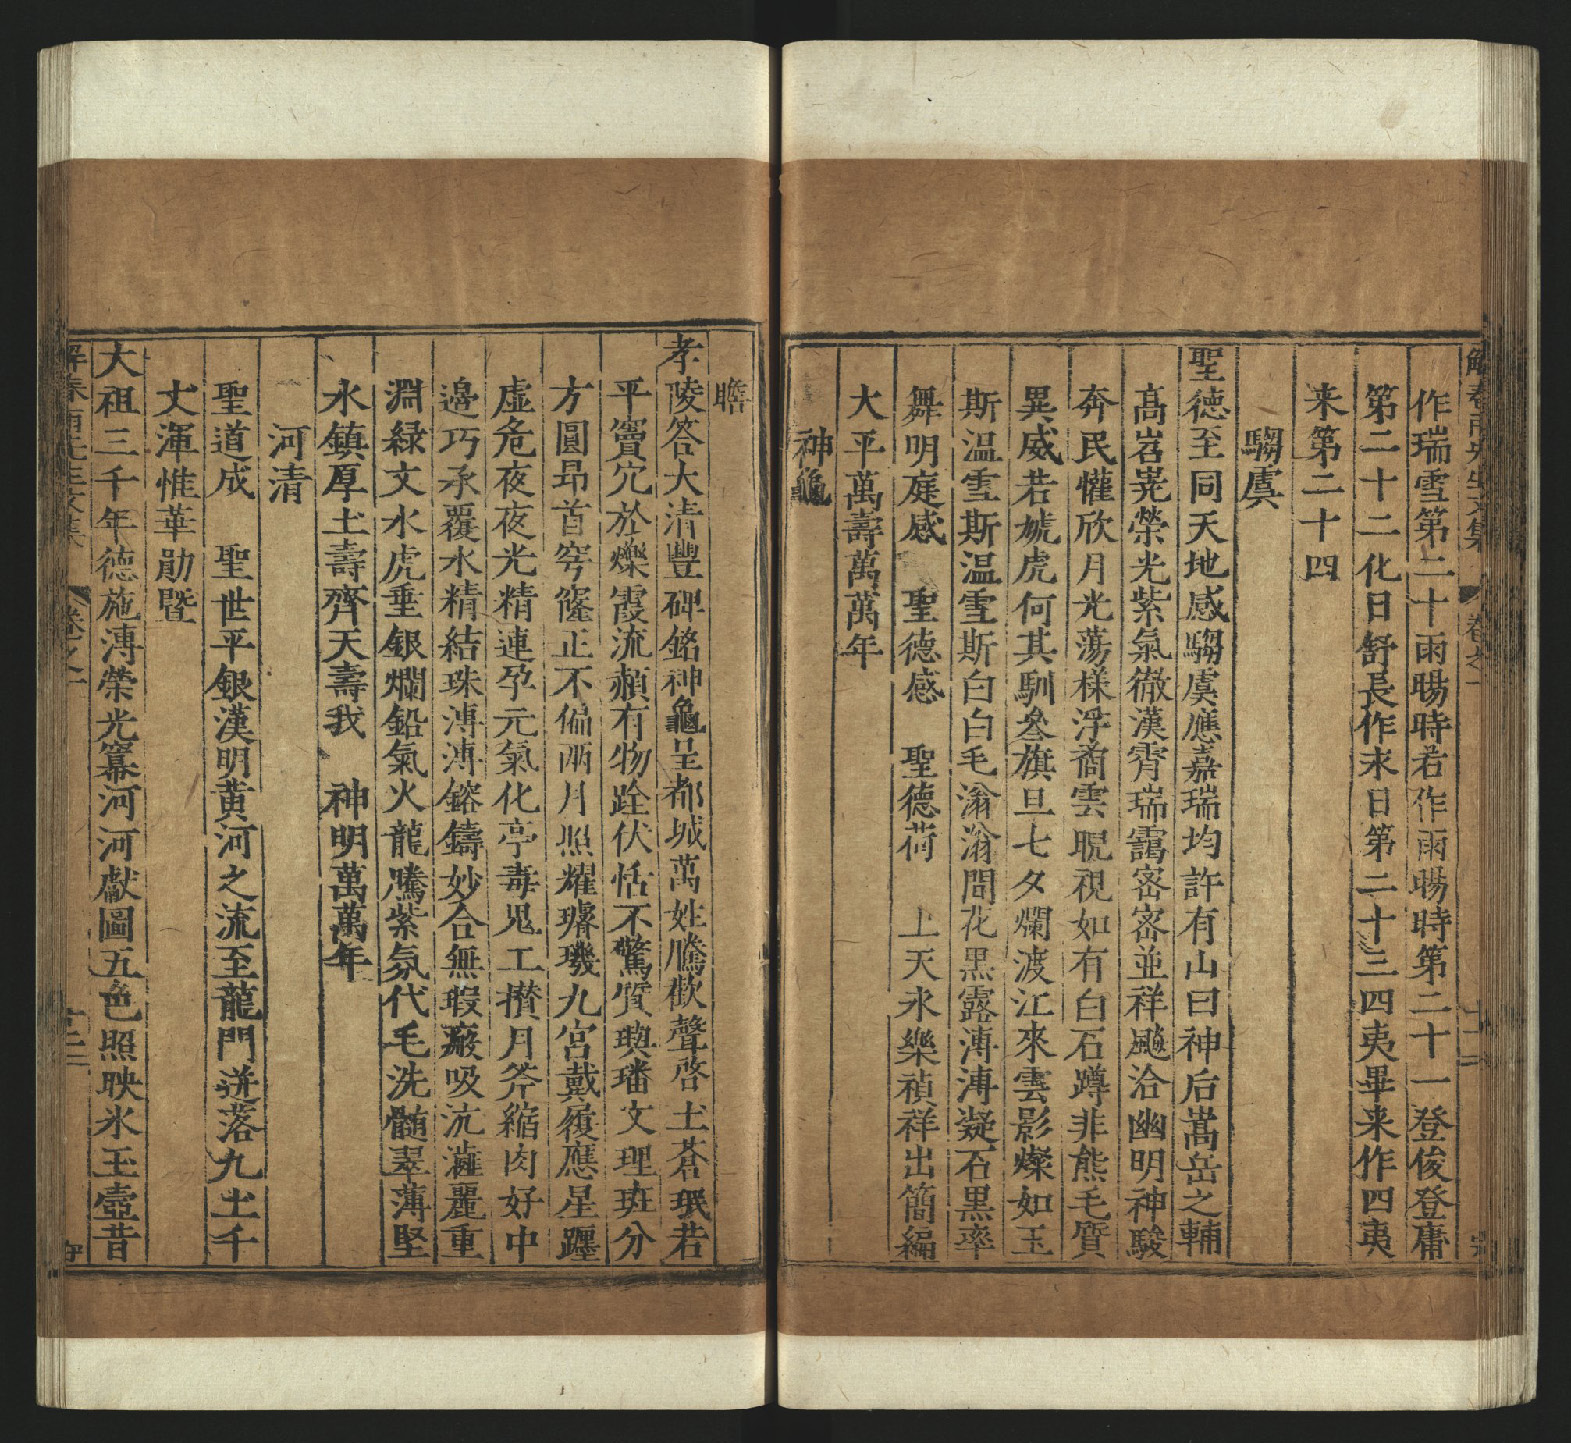 解春雨先生文集 卷之一 十二
作瑞雪第二十雨暘時若作雨暘時第二十一登俊登庸
第二十二化日舒長作永日第二十三四夷畢来作四夷
来第二十四
騶虞
聖徳至同天地感騶虞應嘉瑞均許有山曰神后嵩岳之輔
髙岧嵬榮光紫氣徹漢霄瑞靄密密並祥飈洽幽明神駿
奔民懽欣月光蕩様浮矞雲睨視如有白石蹲非熊毛質
異威若虣虎何其馴叄旗旦七夕爛渡江來雲影燦如玉
斯温雪斯温雪斯白白毛滃滃間花黒露溥溥凝石黒率
舞明庭感 聖德感 聖德荷 上天永樂禎祥出簡編
大平萬壽萬萬年
神龜
瞻
孝陵答大清豐碑銘神龜呈都城萬姓騰歡聲啓土蒼珉若
平竇宂於爍霞流赬有物跧伏恬不驚質璵璠文理班分
方圓昂首穹窿正不偏兩月照耀璿璣九宮戴履應星躔
虚危夜夜光精連孕元氣化亭毒鬼工攅月斧縮肉好中
邊巧承覆水精結珠溥溥鎔鑄妙合無瑕癜吸沆瀣麗重
淵緑文水虎垂銀爛鉛氣火龍騰紫氛代毛洗髄翠薄堅
永鎮厚土壽齊天壽我 神明萬萬年
河清
聖道成 聖世平銀漢明黄河之流至龍門迸落九土千
丈渾惟華勛暨
大祖三千年德施溥榮光冪河河獻圖五色照映氷玉壺昔
解春雨先生文集 卷之一 十三